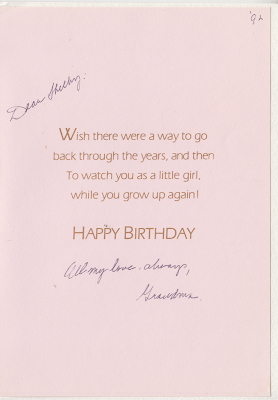 '92
Dear Shelby:
Wish there were a way to go
back through the years, and then
To watch you as a little girl,
while you grow up again!
HAPPY BIRTHDAY
All my love always,
Grandma.